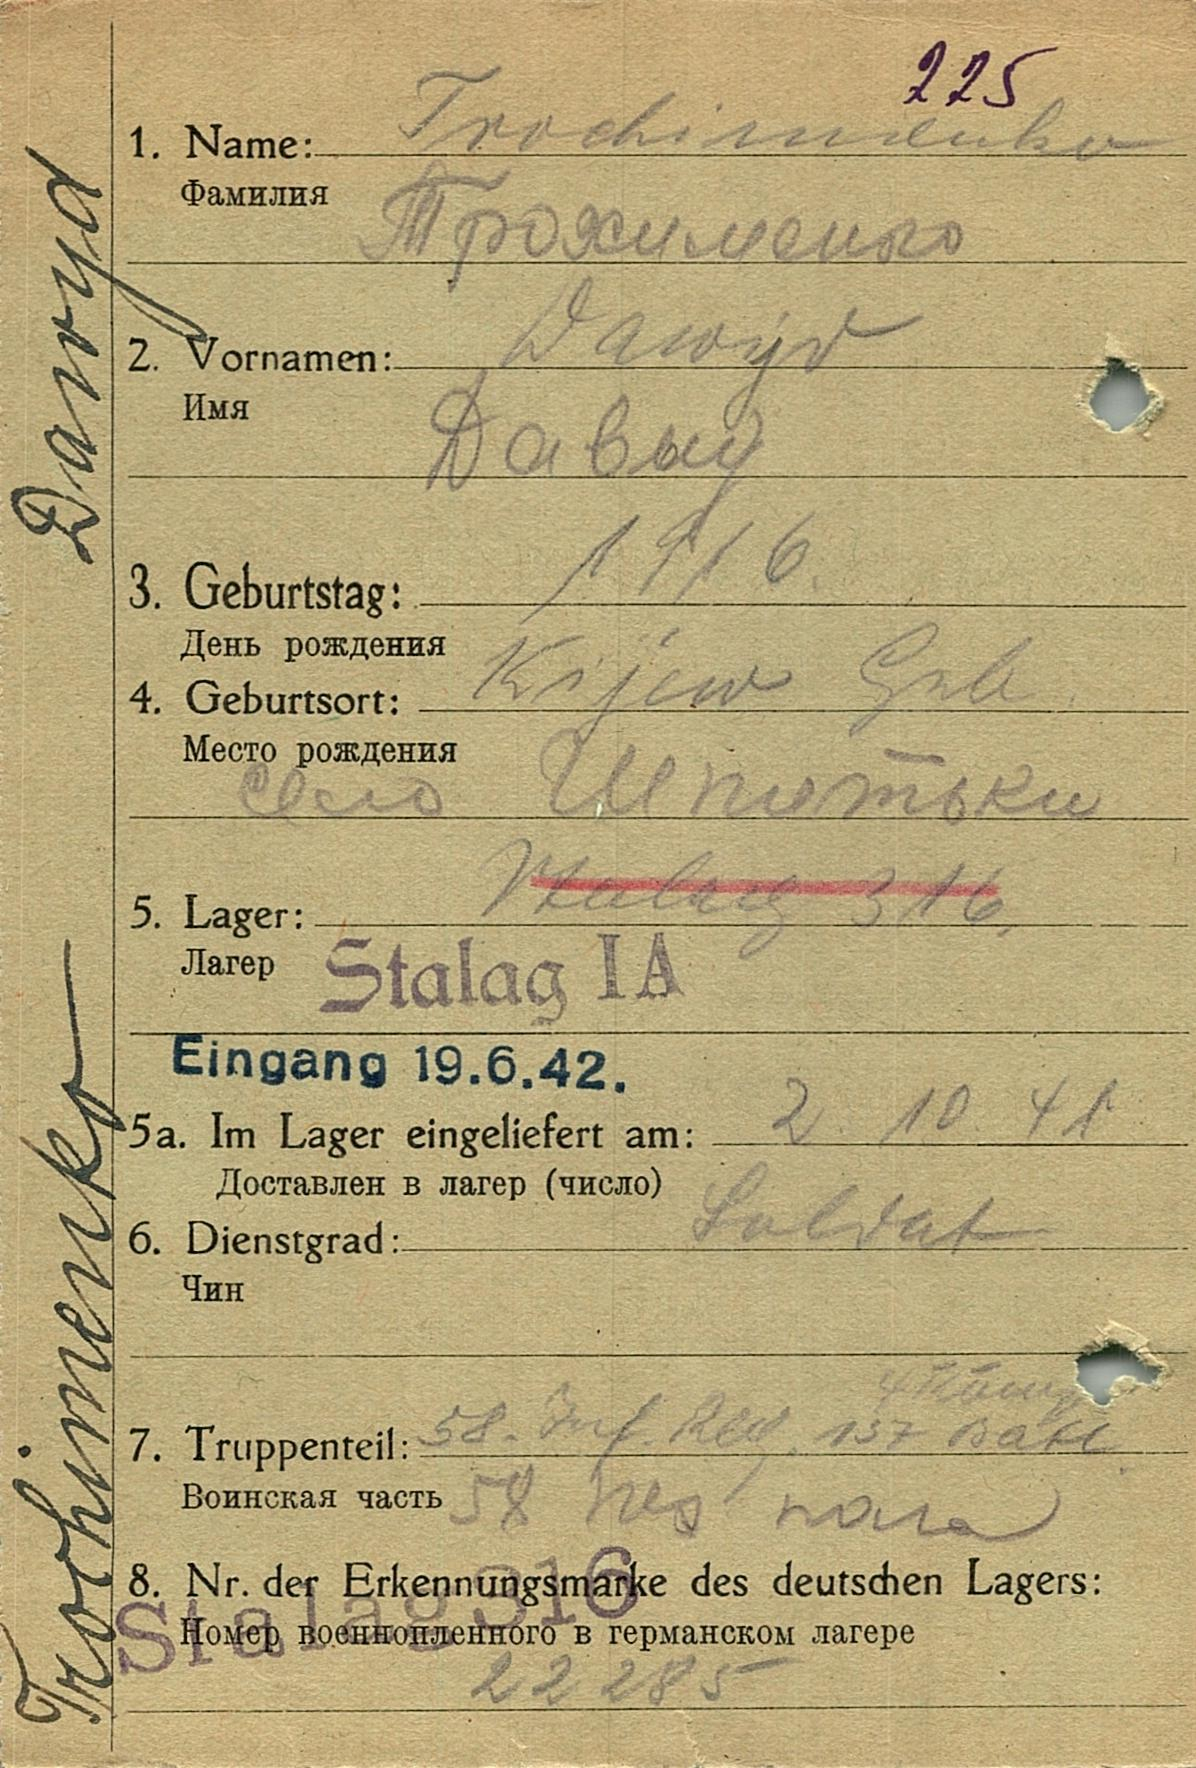 225
1. Name: Trochimenko
Фамилия
Трохименко
2. Vornamen: Dawyd
Имя
Давыд
3. Geburtstag: 1916.
День рождения
4. Geburtsort: Kijew Geb.
Место рождения
село
5. Lager: Stalag 316.
Лагер
Stalag IA
Eingang 19.6.42.
5a. Im Lager eingeliefert am: 2. 10. 41
Доставлен в лагер (число)
6. Dienstgrad: Soldat
Чин
7. Truppenteil: 58. Inf. Reg. 157 Batl.
Воинская часть 58
8. Nr. der Erkennungsmarke des deutschen Lagers:
Stalag 316
Номер военнопленного в германском лагере
22285
Trochimenko Dawyd